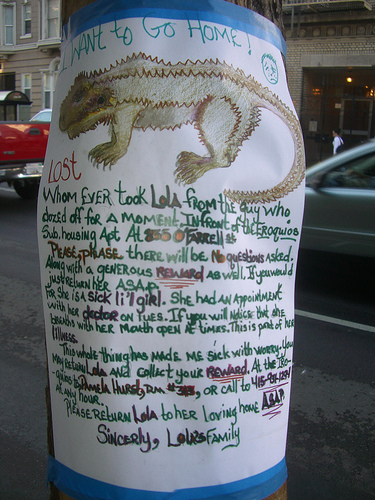 I WANT to Go HOME!
LOST
WHOM EVER took Lola FROM the guy WHO
dozed off FOR A MOMENT. INFRONT of the Iroquios
Sub. housing Apt. At O'FARRELL St
PLEASE, PLEASE there will be No questions asked.
Along with A generous REWARD AS well. If you would
just return her ASAP.
FOR She is A sick li'l girl. She HAD AN Appointment
with her doctor on Tues. If you will Notice that she
breaths with her Mouth open At times. This is part of her
Illness.
This whole thing has MADE ME Sick with worry. You
MAY return Lola and collect your REWARD. At the Iro-
quios to Pamela Hurst, D.M. # , or call to
At any hour.
Please return Lola to her loving home ASAP.
Sincerly, Lola's Family